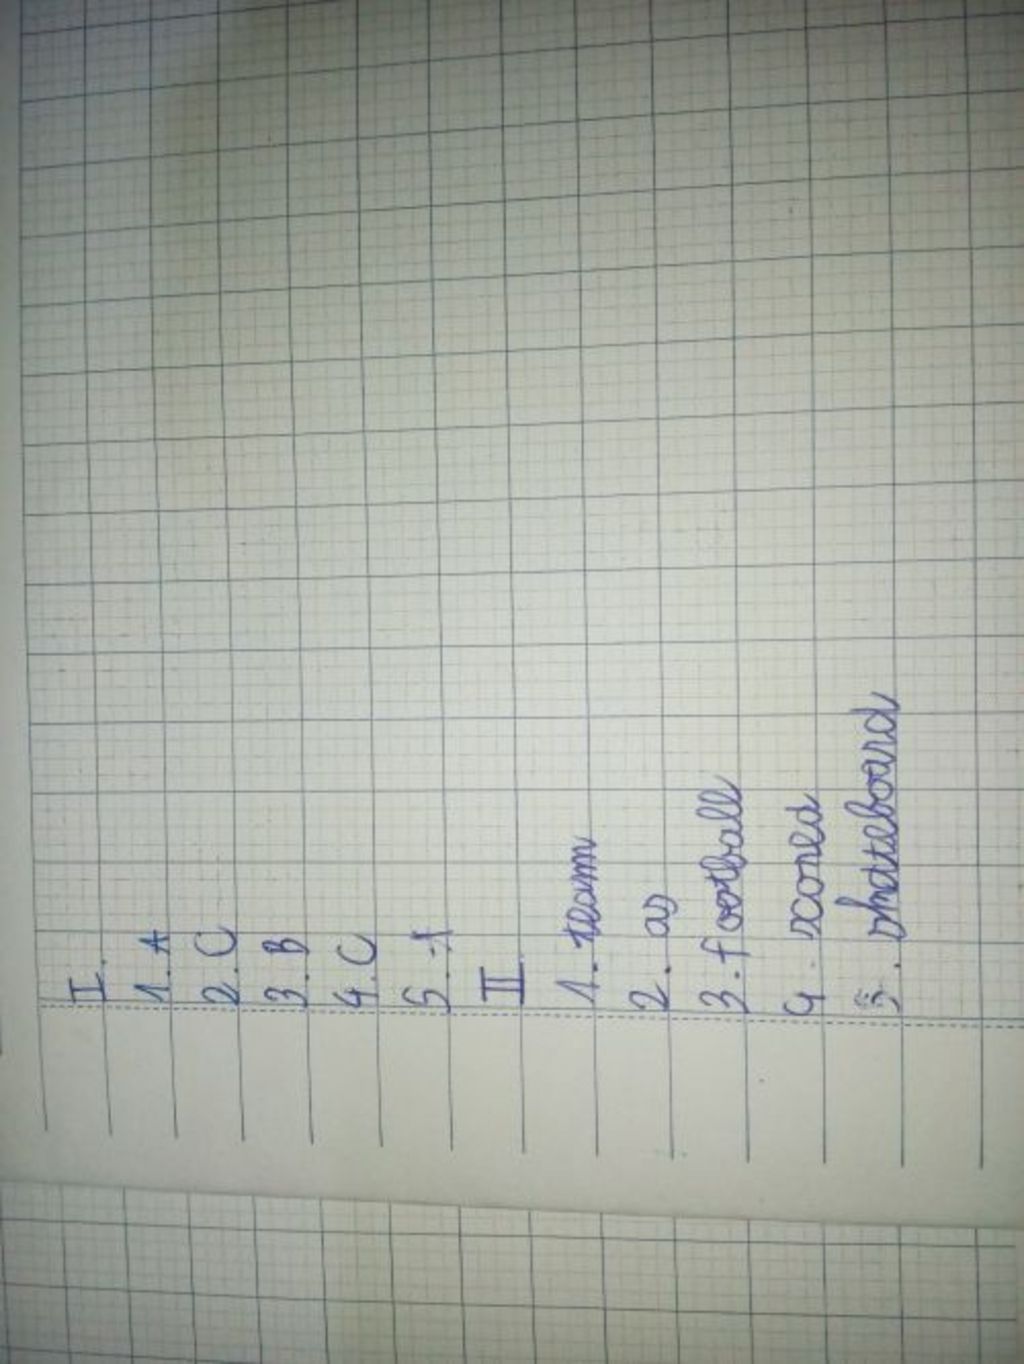 I.
1. A
2. C
3. B
4. C
5. A
II
1. team
2. as
3. football
4. scored
5. skateboard